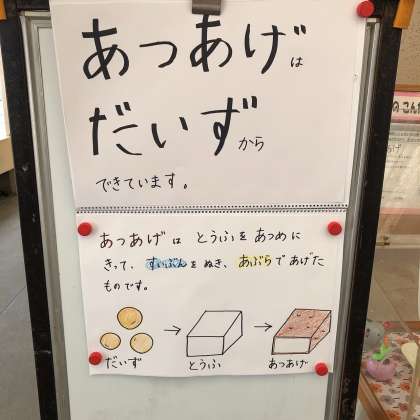 あつあげは
だいずから
できています。
あつあげは とうふをあつめに
きって、すいぶんをぬき、あぶらであげた
ものです。
だいず → とうふ → あつあげ